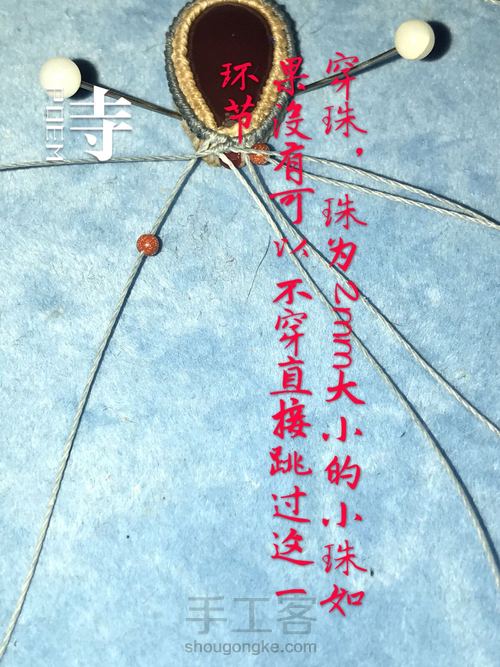 穿珠，珠为2mm大小的小珠如
果没有可以不穿直接跳过这一
环节
寺
POEM
手工客
shougongke.com